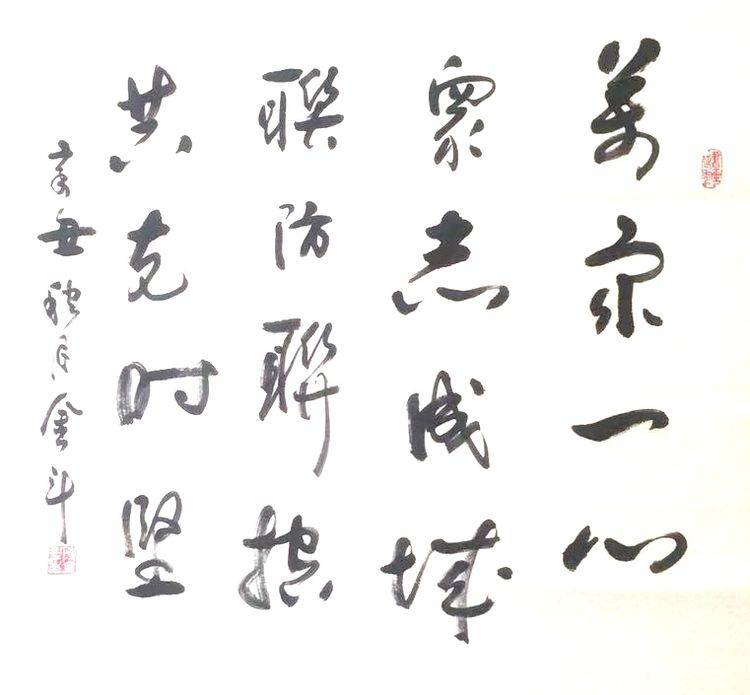 萬眾一心
眾志成城
聯防聯控
共克时堅
辛丑 金斗